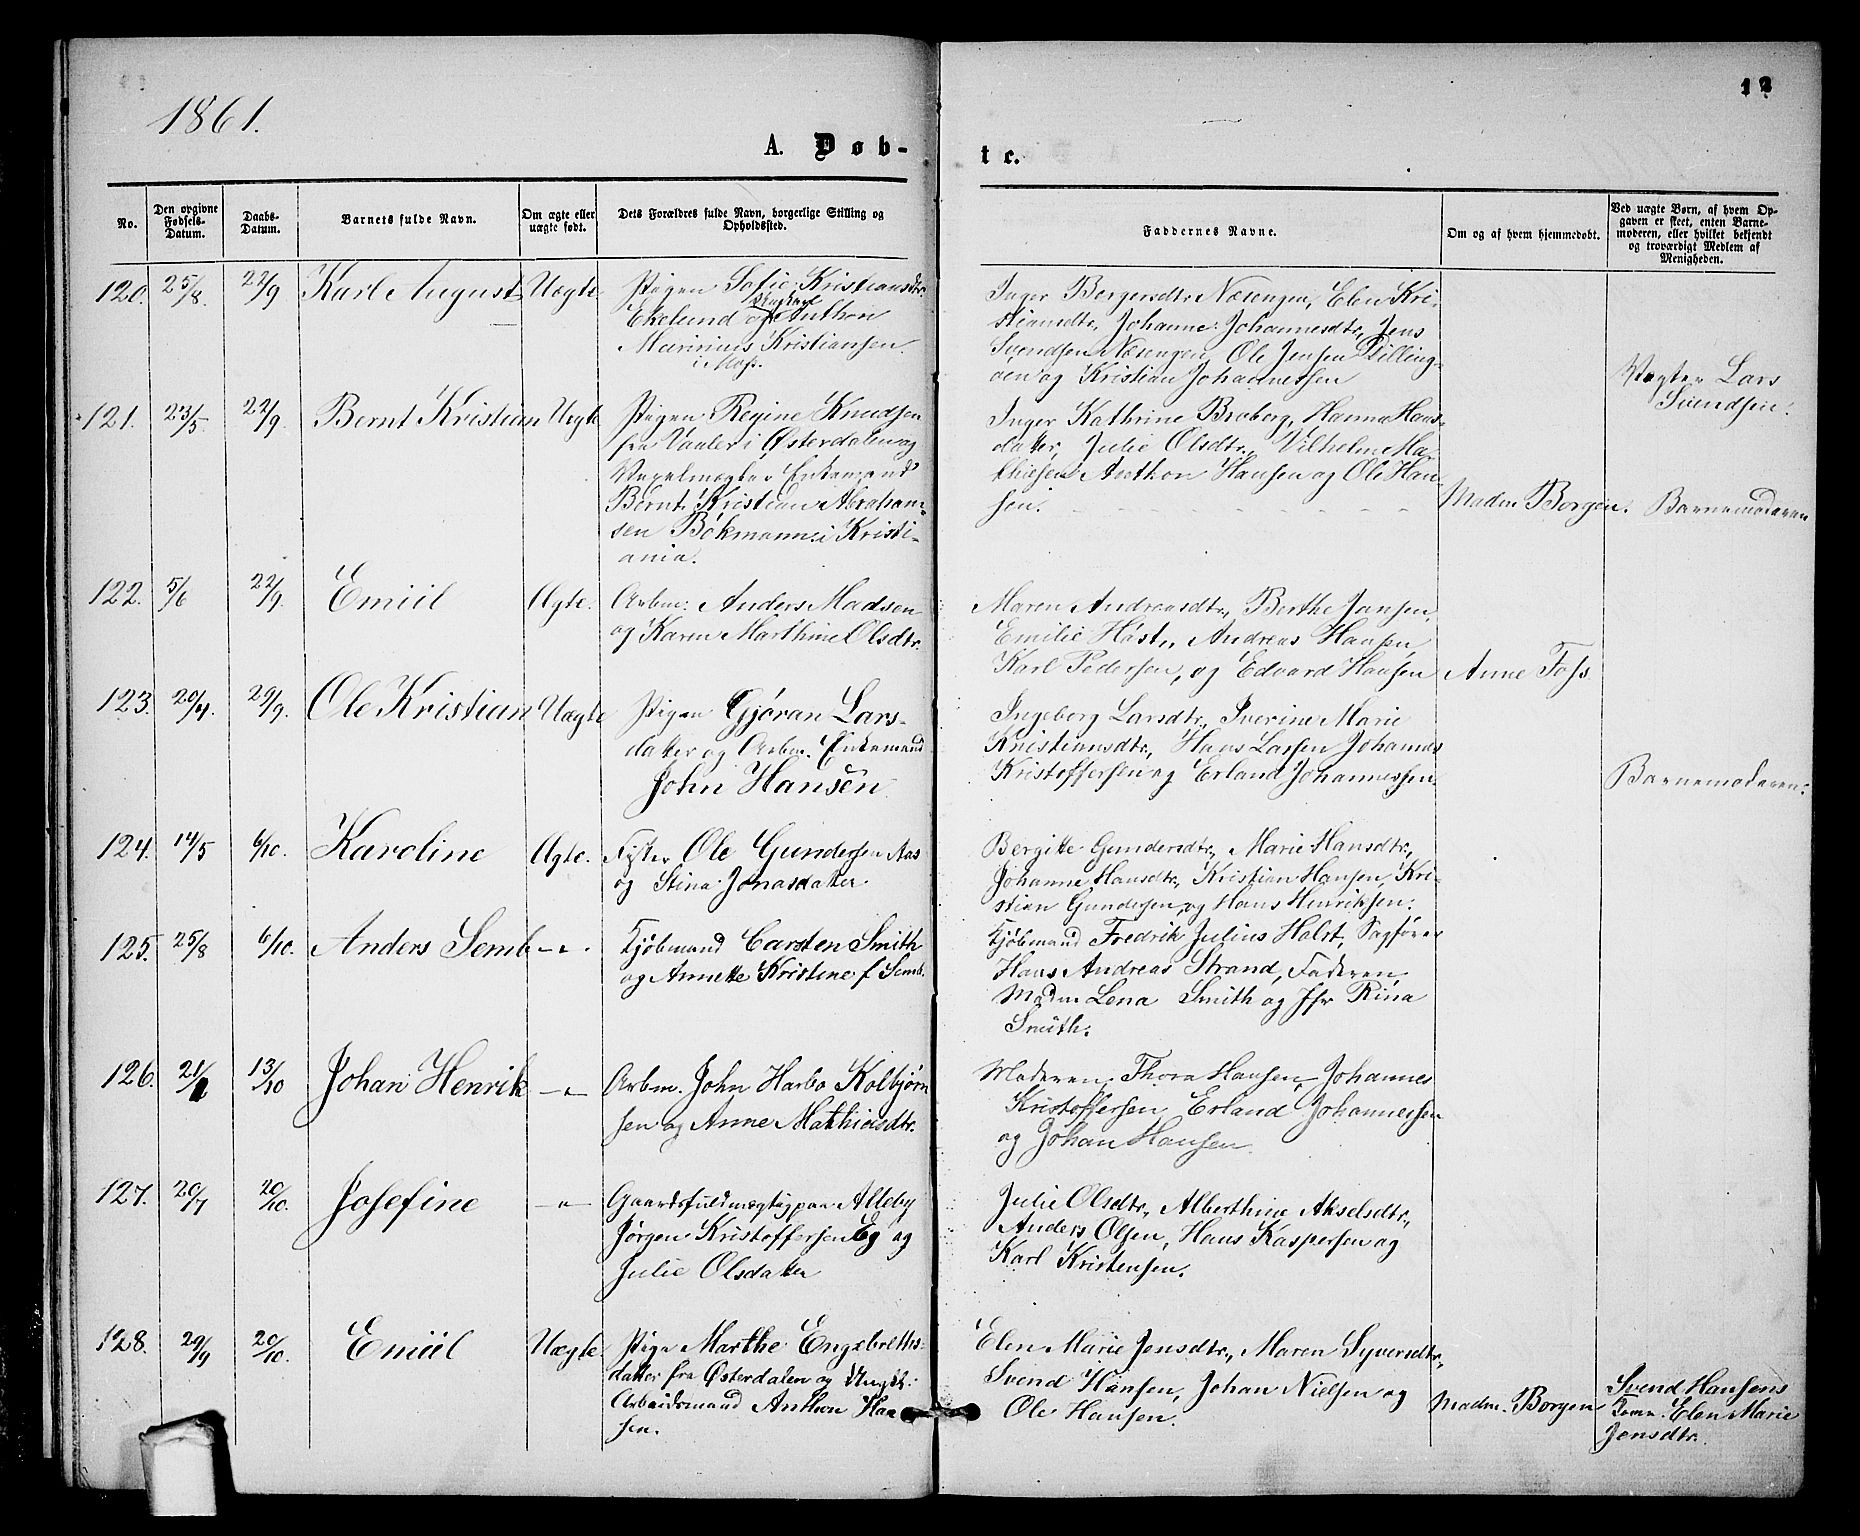 1861.
12
A. Døb-
te.
No.
Den opgivne Fødsels-Datum.
Daabs-Datum.
Barnets fulde Navn.
Om ægte eller uægte født.
Dets Forældres fulde Navn, borgerlige Stilling og Opholdssted.
Faddernes Navne.
Om og af hvem hjemmedøbt.
Ved uægte Børn, af hvem Op-
gaven er skeet, enten Barne-
moderen, eller hvilket bekjendt
og troværdigt Medlem af
Menigheden.
120. 25/8. 22/9 Karl August Uægte Pigen Sofie Kristiansdtr.
Ekelund og Ungkarl Anthon
Marinius Kristiansen
i Moss.
Inger Bergersdtr Næsengen, Elen Kri-
stiansdtr, Johanne Johannesdtr, Jens
Svendsen Næsengen, Ole Jensen Dilling-
øen og Kristian Johannessen
Vægter Lars
Svendsen.
121. 23/5 22/9. Bernt Kristian Uægte Pigen Regine Knudsen
fra Vaaler i Østerdalen og
Enkemand
Bernt Kristian Abraham-
sen Bökmann i Kristi-
ania.
Inger Kathrine Broberg, Hanna Hans-
datter, Julie Olsdtr., Vilhelm Ma-
thiesen Anthon Hansen og Ole Han-
sen.
Madm Borgen.
Barnemoderen
122. 5/6 22/9. Emiil Ægte. Arbm: Anders Madsen
og Karen Marthine Olsdtr.
Maren Andreasdtr, Berthe Jansen,
Emilie Høst, Andreas Hansen
Karl Pedersen, og Edvard Hansen
Anne Foss
123. 20/4. 29/9. Ole Kristian Uægte Pigen Gjøran Lars-
datter og Arbm. Enkemand
John Hansen
Ingeborg Larsdtr, Iverine Marie
Kristiansdtr, Hans Larsen Johannes
Kristoffersen og Erland Johannessen.
Barnemoderen.
124. 14/5 6/10. Karoline Ægte. Ole Gundersen Aas
og Stina Jonasdatter.
Bergitte Gundersdtr, Marie Hansdtr,
Johanne Hansdtr, Kristian Hansen, Kri-
stian Gundersen og Hans Henriksen.
125. 25/8 6/10. Anders Semb -"- Kjøbmand Carsten Smith
og Annette Kristine f Semb.
Kjøbmand Fredrik Julius Holst, Sagfører
Hans Andreas Strand, Faderen
Madm Lena Smith og Jfr Rina
Smith.
126. 13/10 Johan Henrik -"- Arbm. John Harbo Kolbjørn
sen og Anne Mathiasdtr.
Moderen, Thora Hansen, Johannes
Kristoffersen, Erland Johannessen
og Johan Hansen.
127. 20/7 20/10. Josefine -"- Gaardsfuldmægtig paa Alleby
Jørgen Kristoffersen Eg og
Julie Olsdatter
Julie Olsdtr, Alberthine Akselsdtr,
Anders Olsen, Hans Kaspersen og
Karl Kristensen.
128. 29/9 20/10. Emiil Uægte Pige Marthe Engebretts-
datter fra Østerdalen og Ungk:
Arbeidsmand Anthon Han
sen.
Elen Marie Jensdtr, Maren Syversdtr,
Svend Hansen, Johan Nielsen og
Ole Hansen.
Madm. Borgen
Svend Hansens
Kone. Elen Marie
Jensdtr.